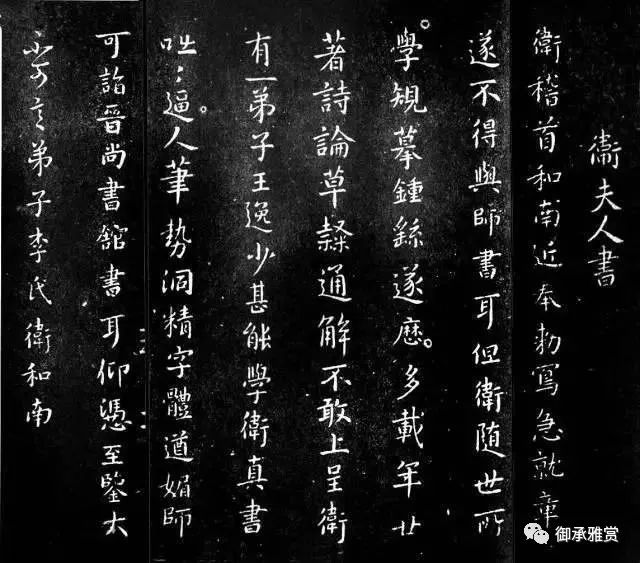 衛夫人書
衛稽首和南近奉勅寫急就章
遂不得與師書耳但衛隨世所
學規摹鍾繇遂歷多載年廿
著詩論草隸通解不敢上呈衛
有一弟子王逸少甚能學衛真書
咄〻逼人筆勢洞精字體遒媚師
可詣晉尚書館書耳仰憑至鑒大
不可言弟子李氏衛和南
御承雅赏